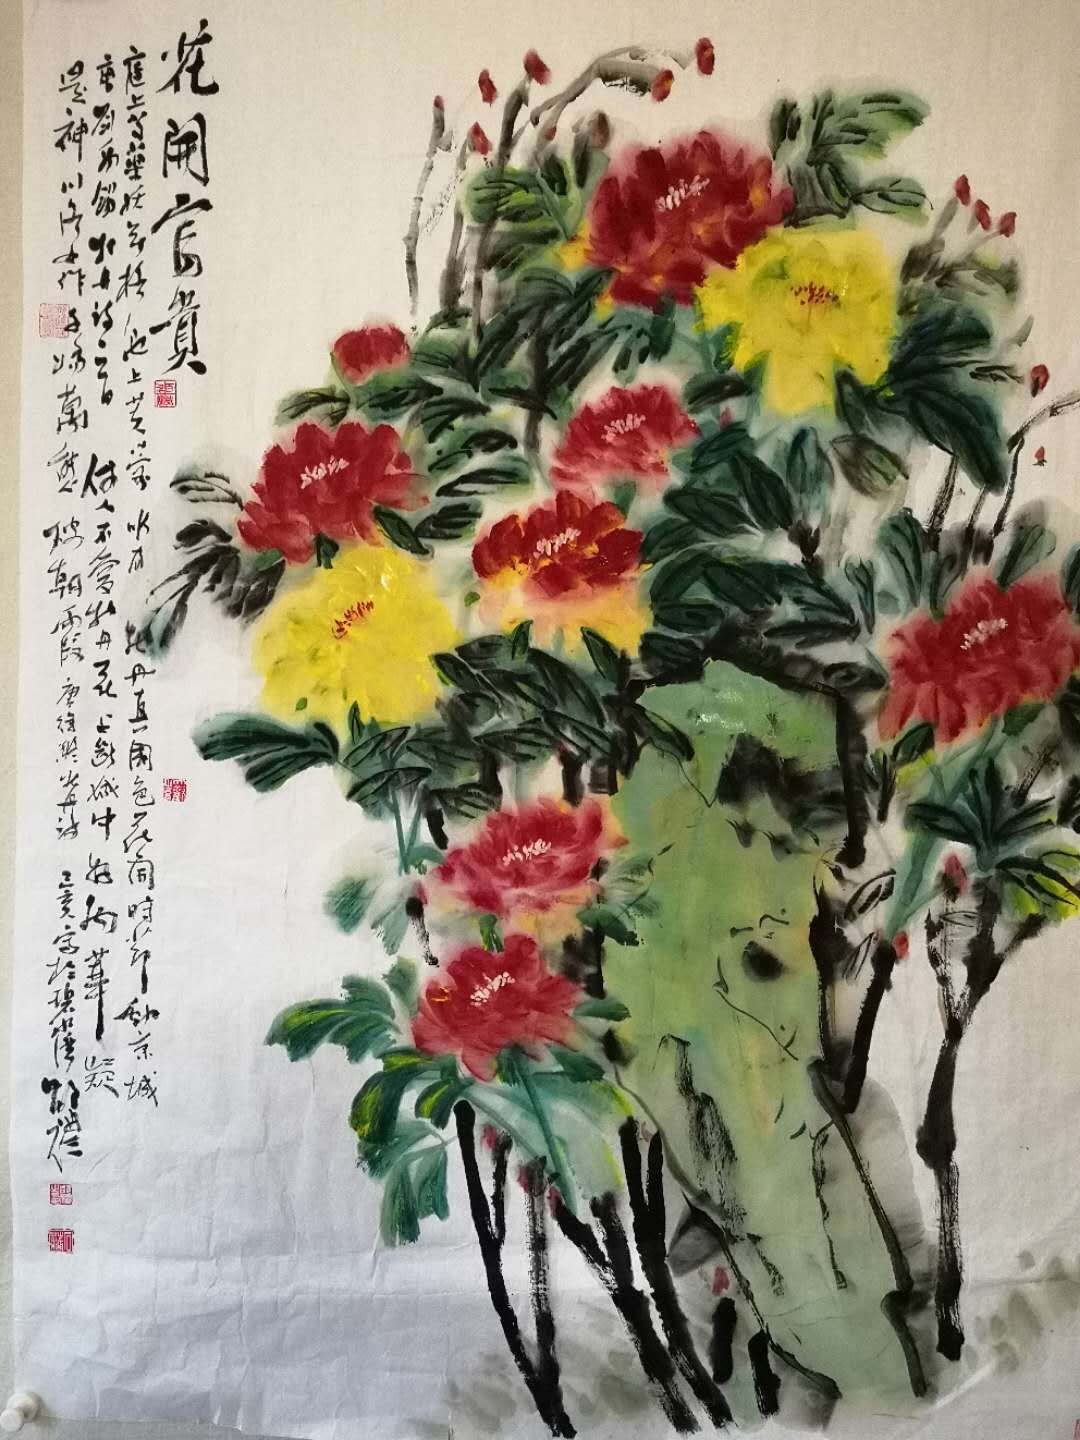 花開富貴
庭上芍藥妖無格池上芙 唯有牡丹真國色花開時節動京城
唐劉禹錫牡丹詩一首 何人不愛牡丹花占斷城中好物華 疑
是神川洛女作千嬌萬態破朝霞 唐徐凝牡丹詩 己亥 寫於碧